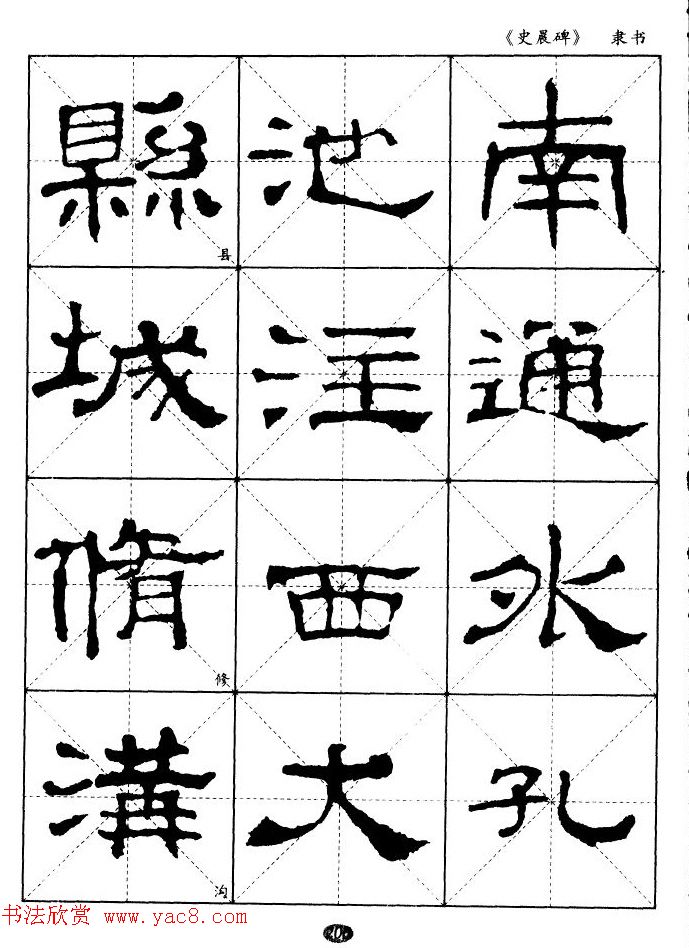 《史晨碑》 隶书
南通水孔
池注西大
縣县城脩修溝沟
书法欣赏 www.yac8.com
20